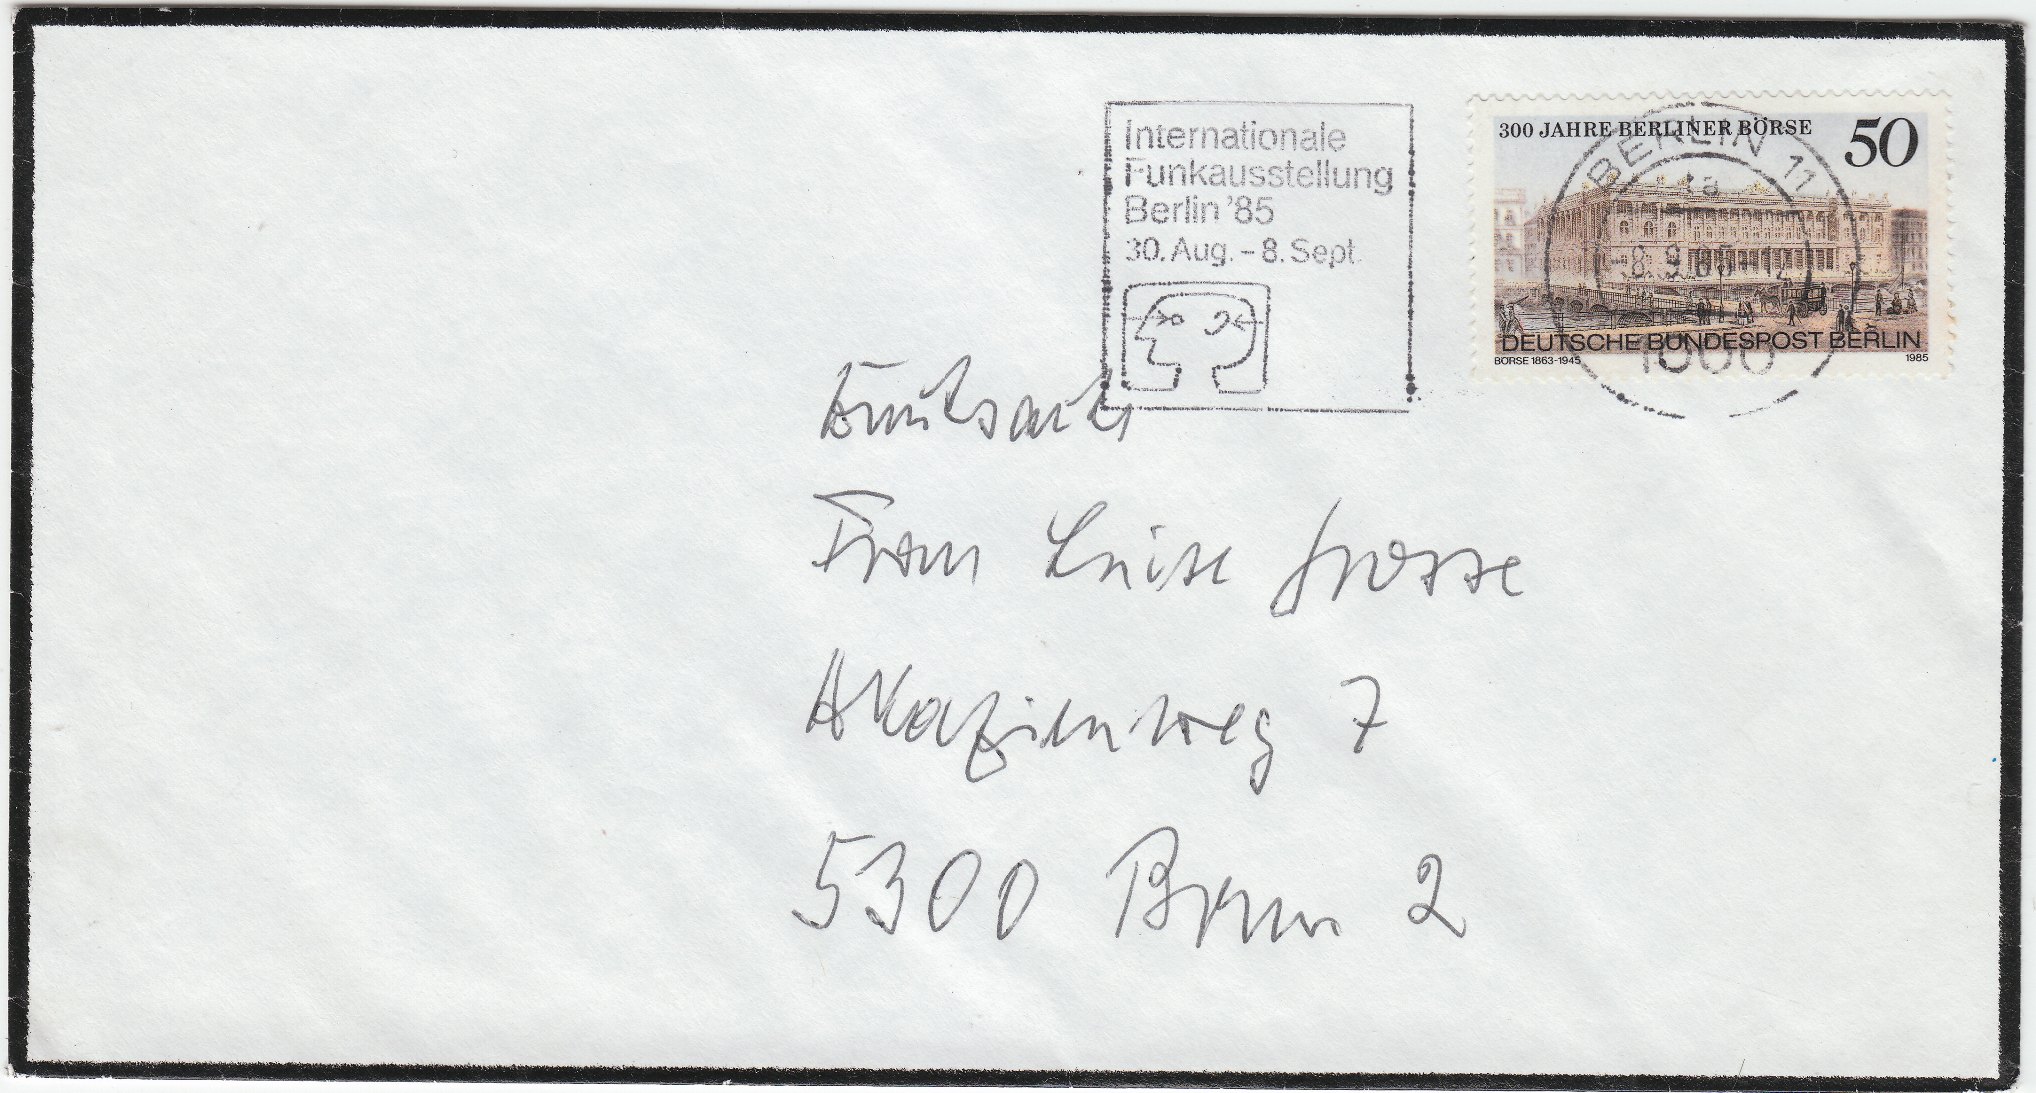 Internationale
Funkausstellung
Berlin '85
30. Aug. - 8. Sept.
300 JAHRE BERLINER BÖRSE 50
DEUTSCHE BUNDESPOST BERLIN
BÖRSE 1863-1945 1985
BERLIN 11
ta
-8.9.85-12
1000
Drucksache
Frau Luise Grosse
Akazienweg 7
5300 Bonn 2